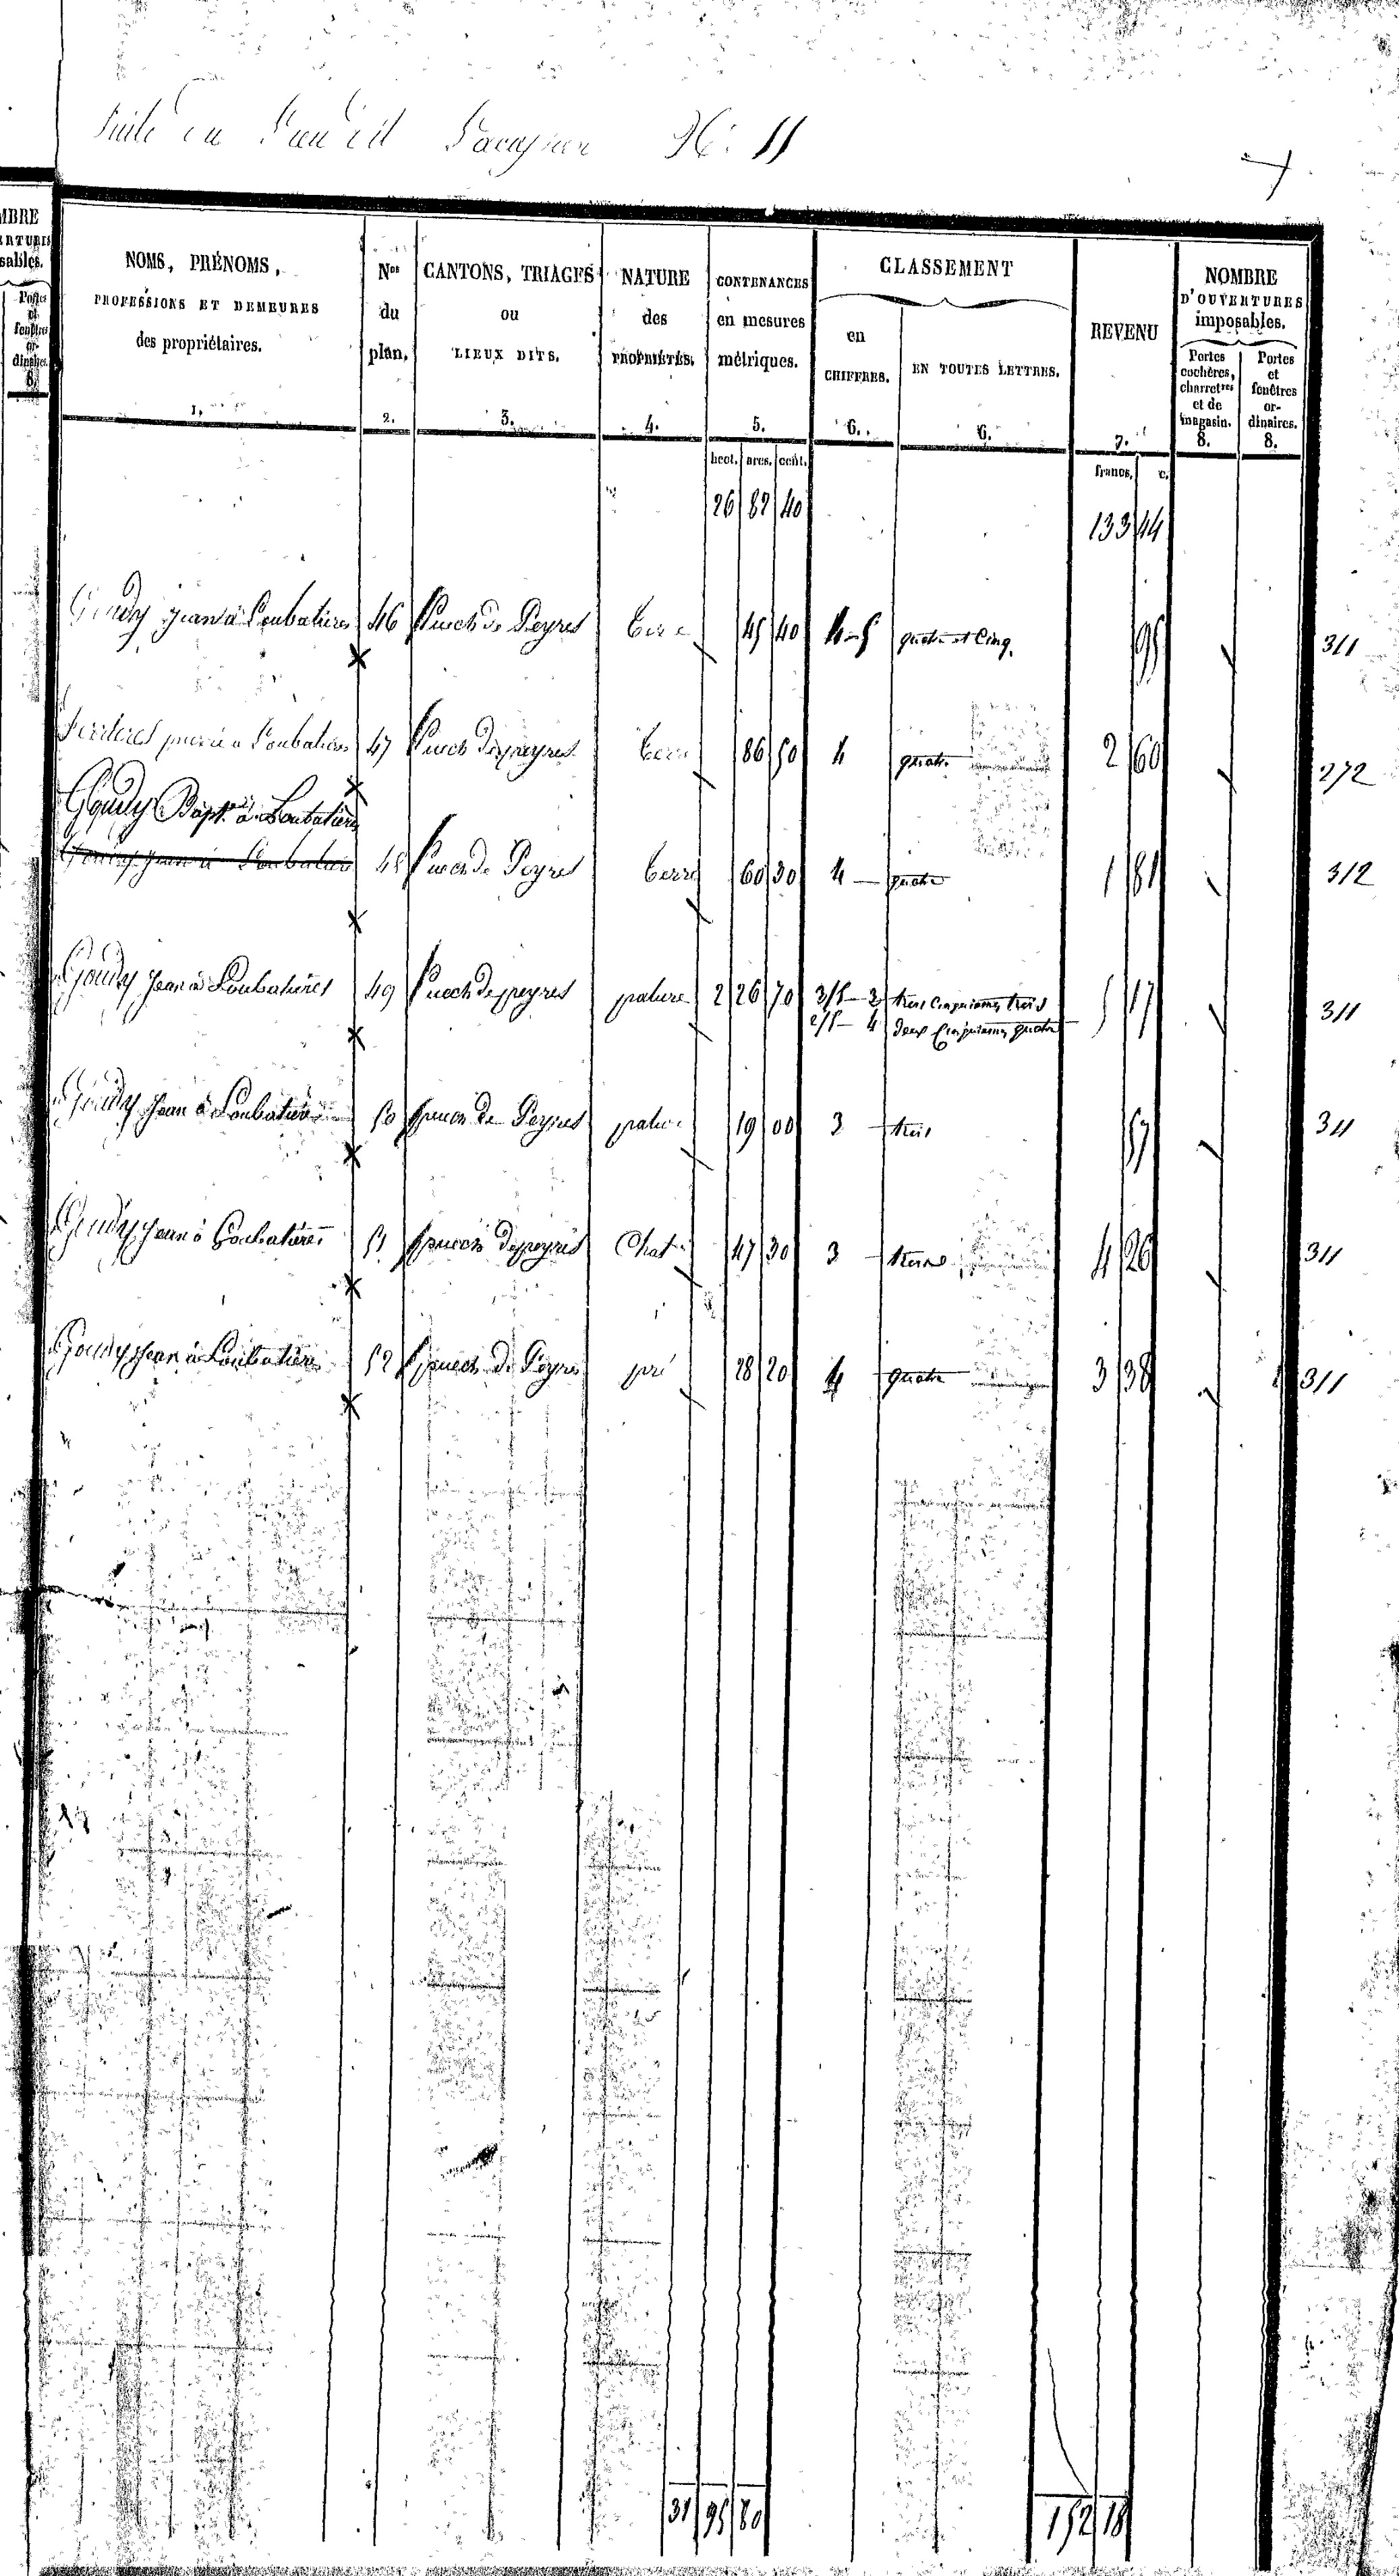 Suite du N: 11
7
MBRE
sables.
8.
NOMS, PRÉNOMS, PROFESSIONS ET DEMEURES des propriétaires. 1.
Nos du plan. 2.
CANTONS, TRIAGES ou LIEUX DITS. 3.
NATURE des PROPRIÉTÉS. 4.
CONTENANCES en mesures métriques. 5.
CLASSEMENT
en CHIFFRES. 6.
EN TOUTES LETTRES. 6.
REVENU 7.
NOMBRE D'OUVERTURES imposables.
Portes cochères, charretres et de magasin. 8.
Portes et fenêtres ordinaires. 8.
hect. ares. cent. francs. c.
26 82 40 133 44
Goudy Jean à Loubatières 46 Puech de Peyres terre 45 40 4-5 quatre et Cinq. 95 311
pierre à Loubatières 47 Puech de peyres terre 86 50 4 quatre 2 60 272
Goudy Bapte à Loubatières
Goudy Jean à Loubatières 48 Puech de Peyres terre 60 30 4 - quatre 1 81 312
Goudy Jean à Loubatières 49 Puech de peyres pature 2 26 70 3/5 - 3 trois Cinquiemes trois 5 17 311
2/5 - 4 deux Cinquiemes quatre
Goudy Jean à Loubatières 50 puech de Peyres pature 19 00 3 - trois 57 311
Goudy Jean à Loubatières 51 puech de peyres Chat. 47 30 3 4 26 311
Goudy Jean à Loubatières 52 puech de Peyres pré 28 20 4 quatre 3 38 311
31 95 80 152 18